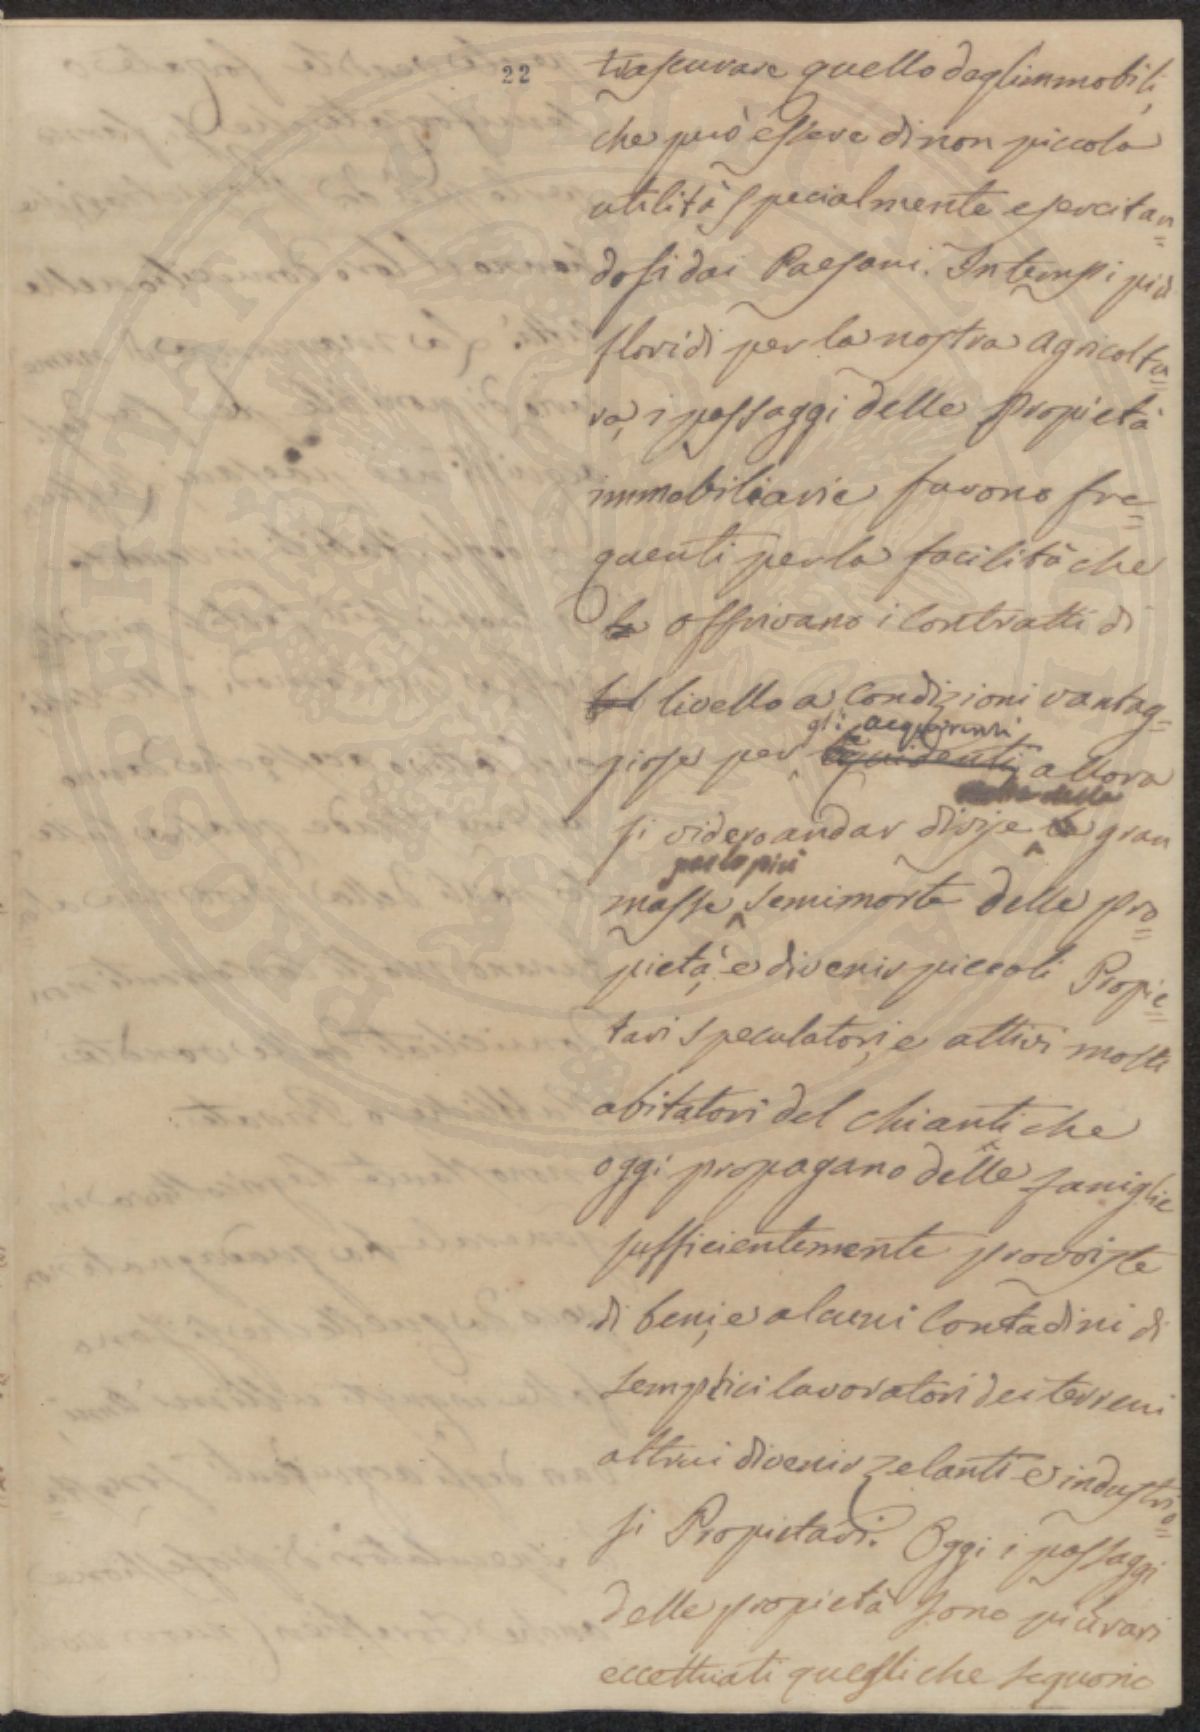 22
trascurare quello degl'immobili,
che può essere di non piccola
utilità specialmente esercitan=
dosi dai Paesani. In tempi più
floridi per la nostra agricoltu=
ra, i passaggi delle propietà
immobiliarie furono fre=
quenti per la facilità che
la offrivano i Contratti di
livello a condizioni vantag=
giose per gli acquirenti allora
si videro andar divise le gran
masse per lo più semimorte delle pro=
pietà, e divenir piccoli Propie=
tari speculatori, e attivi molti
abitatori del Chianti che
oggi propagano delle famiglie
sufficientemente provviste
di beni, e alcuni Contadini di
semplici lavoratori dei terreni
altrui divenir zelanti e industrio=
si Propietari. Oggi i passaggi
delle propietà sono più rari
eccettuati quegli che seguono